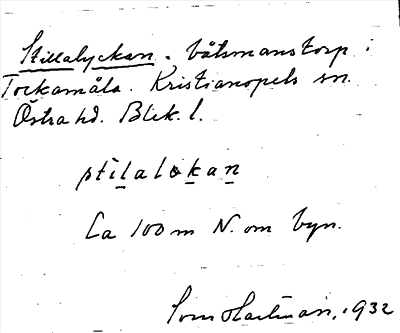 Stillalyckan. båtsmanstorp i
Torkamåla. Kristianopels sn.
Östra hd. Blek. l.
Ca 100 m N. om byn.
1932